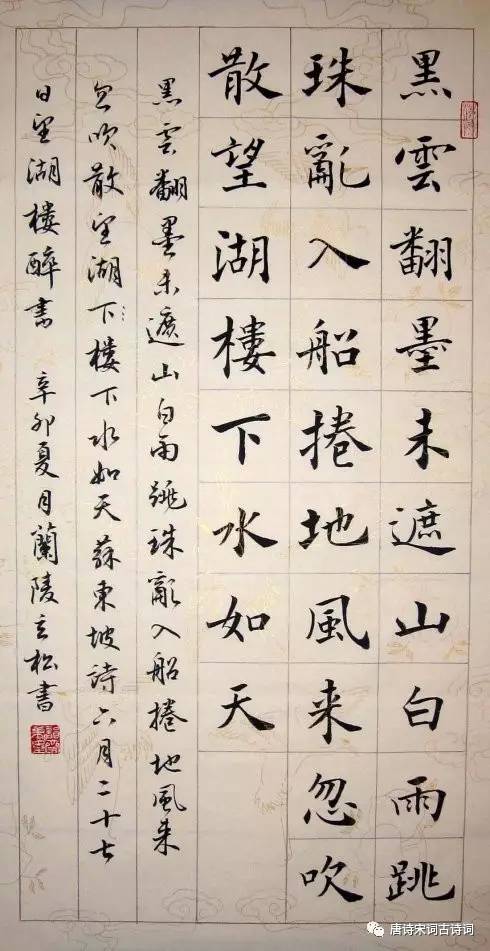 黑雲翻墨未遮山白雨跳
珠亂入船捲地風来忽吹
散望湖樓下水如天
黑雲翻墨未遮山白雨跳珠亂入船捲地風来
忽吹散望湖下樓下水如天蘇東坡詩六月二十七
日望湖樓醉書 辛卯夏月蘭陵立松書
唐诗宋词古诗词